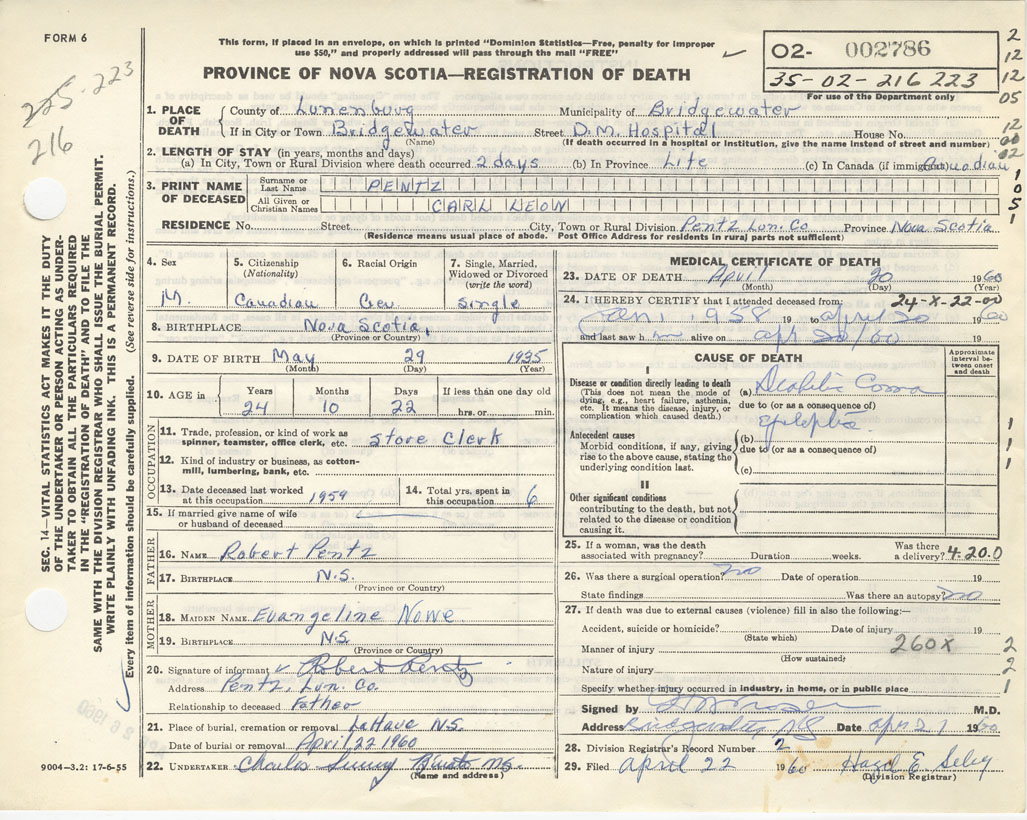 FORM 6
This form, if placed in an envelope, on which is printed "Dominion Statistics—Free, penalty for improper
use $50," and properly addressed will pass through the mail "FREE"
PROVINCE OF NOVA SCOTIA—REGISTRATION OF DEATH
02- 002786
35-02-216 223
For use of the Department only
2
12
12
05
12
00
02
1
0
5
1
225-223
216
1. PLACE OF DEATH
County of Lunenburg Municipality of Bridgewater
If in City or Town Bridgewater Street D.M. Hospital House No.
(Name) (If death occurred in a hospital or institution, give the name instead of street and number)
2. LENGTH OF STAY (in years, months and days)
(a) In City, Town or Rural Division where death occurred 2 days (b) In Province Life (c) In Canada (if immigrant) Canadian
3. PRINT NAME OF DECEASED
Surname or Last Name PENTZ
All Given or Christian Names CARL LEON
RESIDENCE No. Street City, Town or Rural Division Pentz Lun. Co Province Nova Scotia
(Residence means usual place of abode. Post Office Address for residents in rural parts not sufficient)
4. Sex M.
5. Citizenship (Nationality) Canadian
6. Racial Origin Ger.
7. Single, Married, Widowed or Divorced (write the word) Single
8. BIRTHPLACE Nova Scotia,
(Province or Country)
9. DATE OF BIRTH May 29 1935
(Month) (Day) (Year)
10. AGE in Years 24 Months 10 Days 22 If less than one day old hrs. or min.
OCCUPATION
11. Trade, profession, or kind of work as spinner, teamster, office clerk, etc. Store Clerk
12. Kind of industry or business, as cotton-mill, lumbering, bank, etc.
13. Date deceased last worked at this occupation 1959
14. Total yrs. spent in this occupation 6
15. If married give name of wife or husband of deceased
FATHER
16. NAME Robert Pentz
17. BIRTHPLACE N.S.
(Province or Country)
MOTHER
18. MAIDEN NAME Evangeline Nowe
19. BIRTHPLACE N.S.
(Province or Country)
20. Signature of informant Robert Pentz
Address Pentz, Lun. Co.
Relationship to deceased Father
21. Place of burial, cremation or removal LaHave N.S.
Date of burial or removal April 22 1960
22. UNDERTAKER Charles NS.
(Name and address)
MEDICAL CERTIFICATE OF DEATH
23. DATE OF DEATH April 20 1960
(Month) (Day)
24. I HEREBY CERTIFY that I attended deceased from: 24-X-22-00
Jan 1 1958 19 to April 20 1960
and last saw h m alive on apr 20/60 19
CAUSE OF DEATH
Approximate interval between onset and death
I
Disease or condition directly leading to death
(This does not mean the mode of dying, e.g., heart failure, asthenia, etc. It means the disease, injury, or complication which caused death.)
(a) Diabetic Coma
due to (or as a consequence of)
Epilepsy
Antecedent causes
Morbid conditions, if any, giving rise to the above cause, stating the underlying condition last.
(b)
due to (or as a consequence of)
(c)
1
1
1
II
Other significant conditions
contributing to the death, but not related to the disease or condition causing it.
25. If a woman, was the death associated with pregnancy? Duration weeks. Was there a delivery? 4.20.0
26. Was there a surgical operation? no Date of operation 19
State findings Was there an autopsy? no
27. If death was due to external causes (violence) fill in also the following:—
Accident, suicide or homicide? Date of injury 19
(State which)
Manner of injury 260X 2
(How sustained)
Nature of injury 2
Specify whether injury occurred in industry, in home, or in public place 1
Signed by M.D.
Address Bridgewater NS Date Apr 21 1960
28. Division Registrar's Record Number 2
29. Filed April 22 1960 Hazel E. Seley
(Division Registrar)
SEC. 14—VITAL STATISTICS ACT MAKES IT THE DUTY
OF THE UNDERTAKER OR PERSON ACTING AS UNDER-
TAKER TO OBTAIN ALL THE PARTICULARS REQUIRED
IN THE "REGISTRATION OF DEATH" AND TO FILE THE
SAME WITH THE DIVISION REGISTRAR WHO SHALL ISSUE THE BURIAL PERMIT.
WRITE PLAINLY WITH UNFADING INK. THIS IS A PERMANENT RECORD.
Every item of information should be carefully supplied. (See reverse side for instructions.)
9004—3.2: 17-6-55